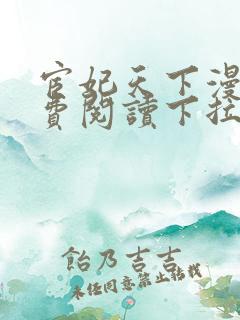 宦妃天下漫
費閱讀下拉
飴乃吉吉
未经同意禁止转载